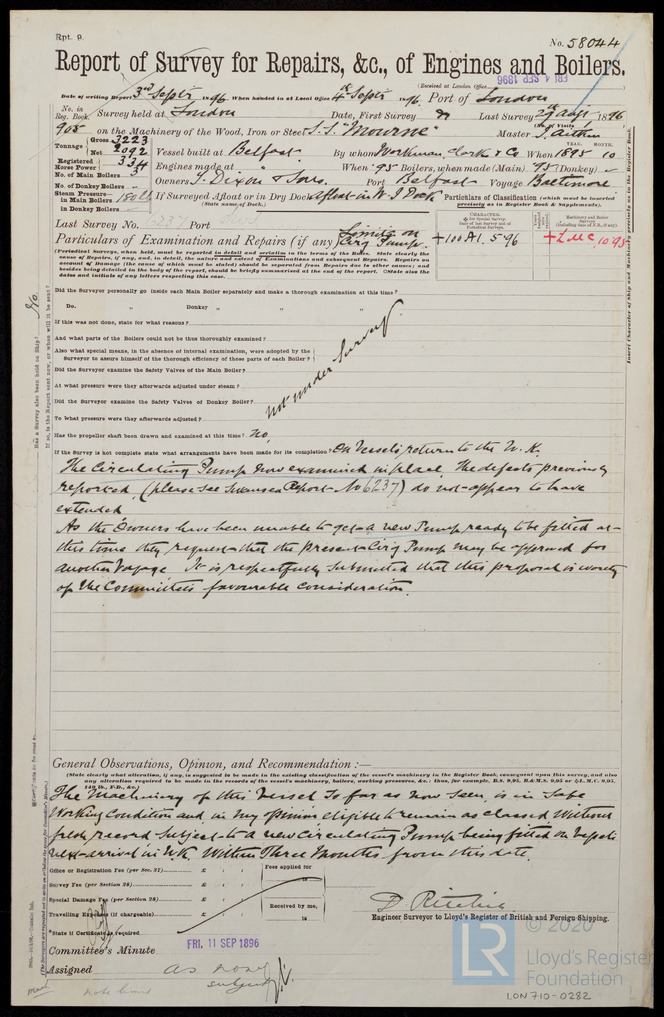 Rpt. 9.
No. 58044
Report of Survey for Repairs, &c., of Engines and Boilers.
(Received at London Office
FRI. 4 SEP 1896
Date of writing Report 3rd Septr 1896 When handed in at Local Office 4th Septr 1896 Port of London
No. in Reg. Book. Survey held at London Date, First Survey Last Survey 1896
905 on the Machinery of the Wood, Iron or Steel S.S. "Mourne" Master
Tonnage Gross 3223
Net 2092
Vessel built at Belfast By whom Workman, Clark & Co. When 1895 10
YEAR. MONTH.
Registered Horse Power 334
Engines made at When '95 Boilers, when made (Main) 95 (Donkey)
No. of Main Boilers
No. of Donkey Boilers
Owners T. Dixon & Sons. Port Belfast Voyage Baltimore
Steam Pressure in Main Boilers 180 lb
in Donkey Boilers
If Surveyed Afloat or in Dry Dock Afloat in W. I. Dock
(State name of Dock.)
Particulars of Classification (which must be inserted precisely as in Register Book & Supplements).
Last Survey No. 6237 Port
Particulars of Examination and Repairs (if any) Limits on Circg. Pump.
+100A1. 5.96
+LMC. 10.95
Did the Surveyor personally go inside each Main Boiler separately and make a thorough examination at this time?
Do. " Donkey " " "
If this was not done, state for what reasons?
And what parts of the Boilers could not be thoroughly examined?
Also what special means, in the absence of internal examination, were adopted by the
Surveyor to assure himself of the thorough efficiency of those parts of each Boiler?
Did the Surveyor examine the Safety Valves of the Main Boiler?
At what pressure were they afterwards adjusted under steam?
Did the Surveyor examine the Safety Valves of Donkey Boiler?
To what pressure were they afterwards adjusted?
not under Survey
Has the propeller shaft been drawn and examined at this time? No,
If the Survey is not complete state what arrangements have been made for its completion? On Vessel's return to the U.K.
The Circulating Pump now examined in place, The defects previously
reported, (please see Swansea Report No 6237) do not appear to have
extended
As the Owners have been unable to get a new Pump ready to be fitted at
this time they request that the present Circg Pump may be approved for
another Voyage It is respectfully submitted that this proposal is worthy
of the Committee's favourable consideration.
General Observations, Opinion, and Recommendation :—
(State clearly what alteration, if any, is suggested to be made in the existing classification of the vessel's machinery in the Register Book, consequent upon this survey, and also
any alteration required to be made in the records of the vessel's machinery, boilers, working pressures, &c.
The Machinery of this Vessel so far as now seen, is in Safe
Working Condition and in my opinion eligible to remain as classed without
fresh record subject to a new Circulating Pump being fitted on vessel's
next arrival in UK. Within Three Months from this date.
Office or Registration Fee (per Sec. 27) £ : :
Fees applied for
Survey Fee (per Section 28) £ : :
18
Special Damage Fee (per Section 28) £ : :
Received by me,
Travelling Expenses (if chargeable) £ : :
18
*State if Certificate is required
D Ritchie
Engineer Surveyor to Lloyd's Register of British and Foreign Shipping.
Committee's Minute FRI. 11 SEP 1896
Assigned as now
subject
© 2020
LR
Lloyd's Register
Foundation
LON 710-0282